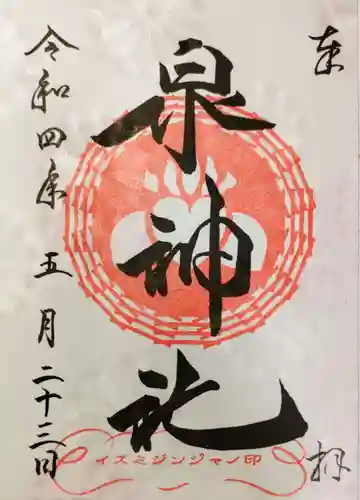 奉拝
泉神社
令和四年 五月二十三日
イスミジンジャノ印